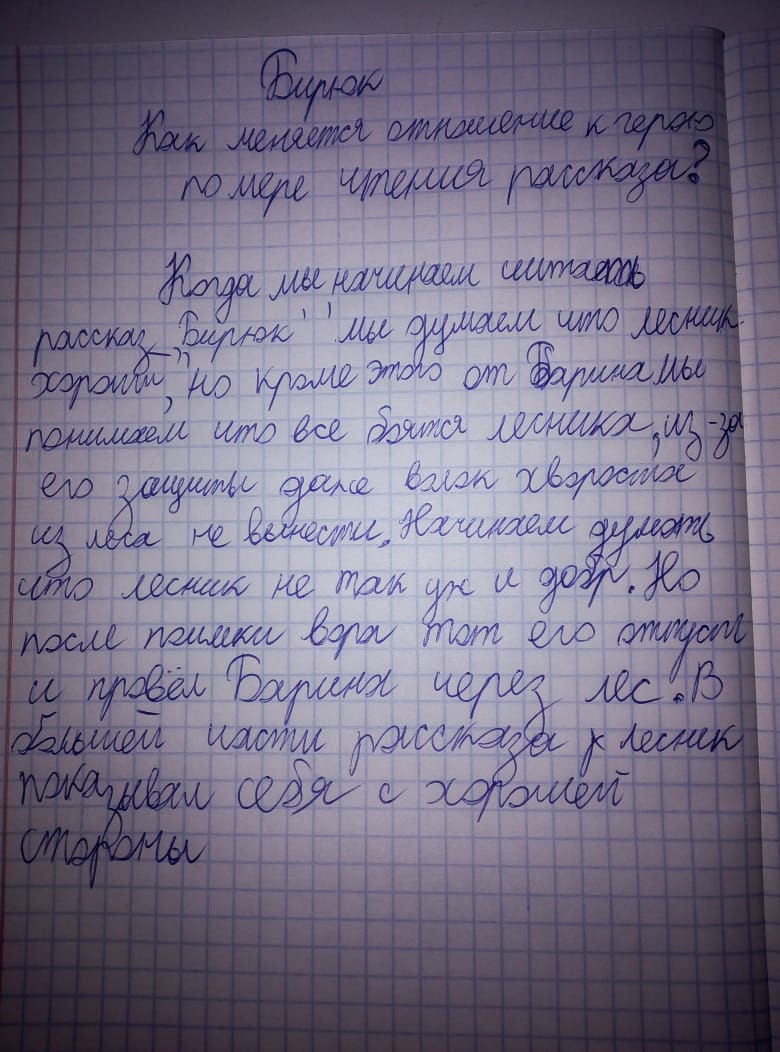 Бирюк
Как меняется отношение к герою
по мере чтения рассказа?
Когда мы начинаем читать
рассказ „Бирюк'' мы думаем что лесник
хороший, но кроме этого от Барина мы
понимаем что все боятся лесника, из-за
его защиты даже вязак хвороста
из леса не вынести. Начинаем думать
что лесник не так уж и добр. Но
после поимки вора тот его отпустил
и провёл Барина через лес. В
большей части рассказа лесник
показывал себя с хорошей
стороны